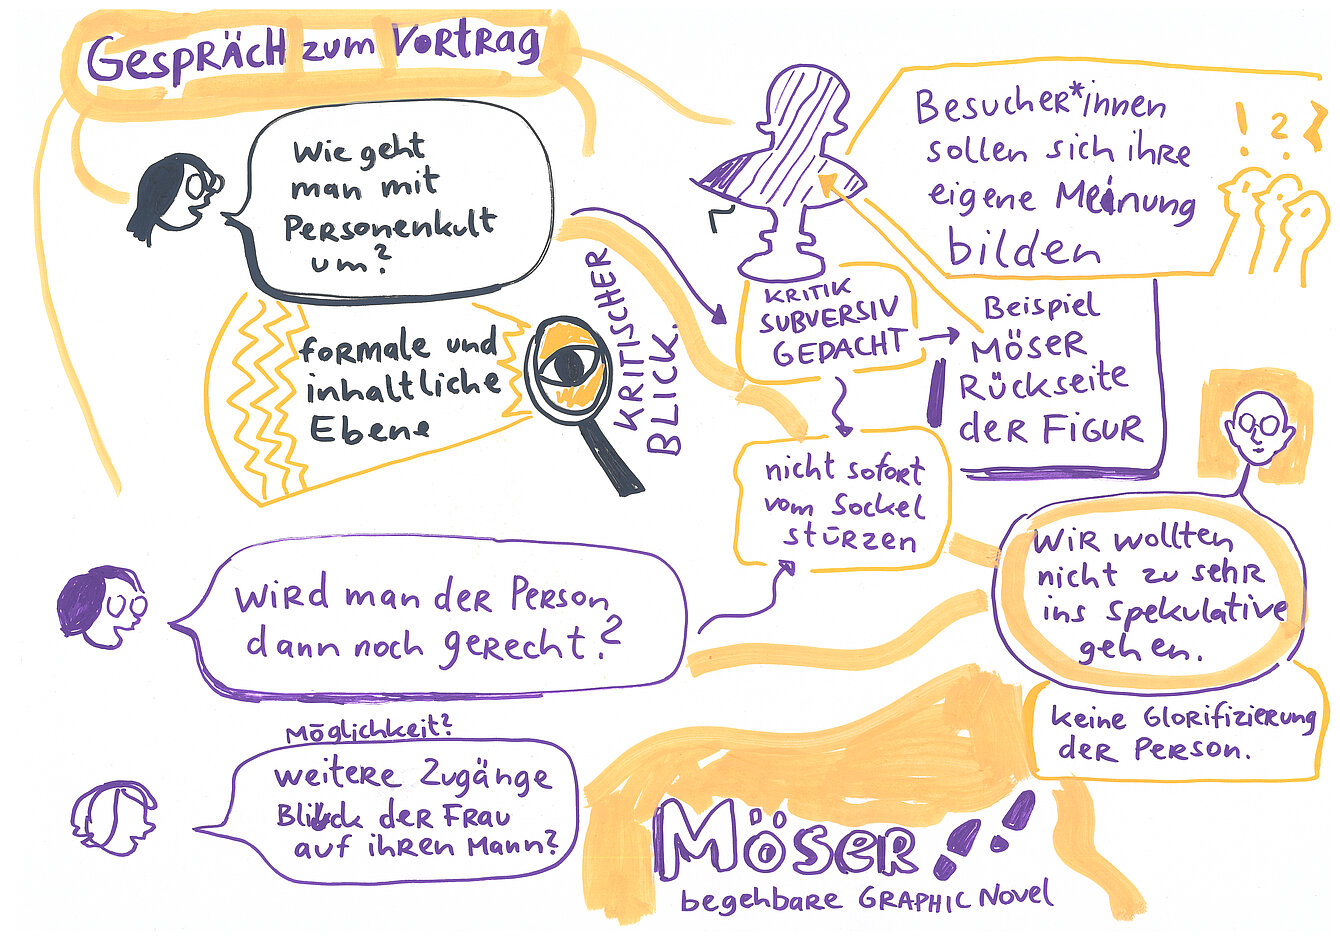 Gespräch zum Vortrag
Wie geht
man mit
Personenkult
um?
formale und
inhaltliche
Ebene
KRITISCHER
BLICK.
Besucher*innen
sollen sich ihre
eigene Meinung
bilden
! ? !
KRITIK
SUBVERSIV
GEDACHT
Beispiel
MÖSER
RÜCKSEITE
DER FIGUR
nicht sofort
vom Sockel
stürzen
Wir wollten
nicht zu sehr
ins spekulative
gehen.
keine Glorifizierung
der Person.
Wird man der Person
dann noch gerecht?
Möglichkeit?
weitere Zugänge
Blick der Frau
auf ihren Mann?
Möser
begehbare GRAPHIC Novel